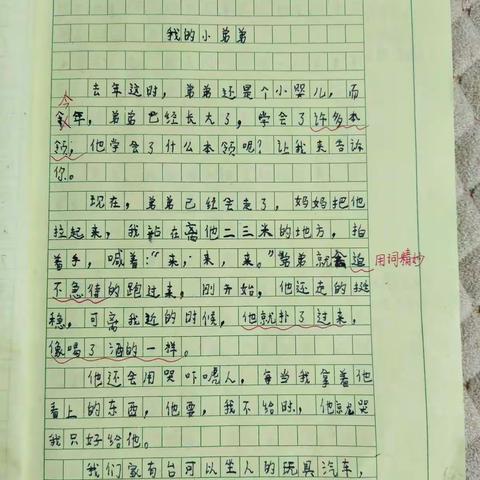 我的小弟弟
去年这时,弟弟还是个小婴儿,而
今
年,弟弟已经长大了,学会了许多本
领,他学会了什么本领呢?让我来告诉
你。
现在,弟弟已经会走了,妈妈把他
拉起来,我站在离他二三米的地方,拍
着手,喊着:“来,来,来。”弟弟就迫
用词精妙
不急待的跑过来,刚开始,他还走的挺
稳,可离我近的时候,他就扑了过来,
像喝了酒的一样。
他还会用哭吓唬人,每当我拿着他
看上的东西,他要,我不给时,他就哭
我只好给他。
我们家有台可以坐人的玩具汽车,